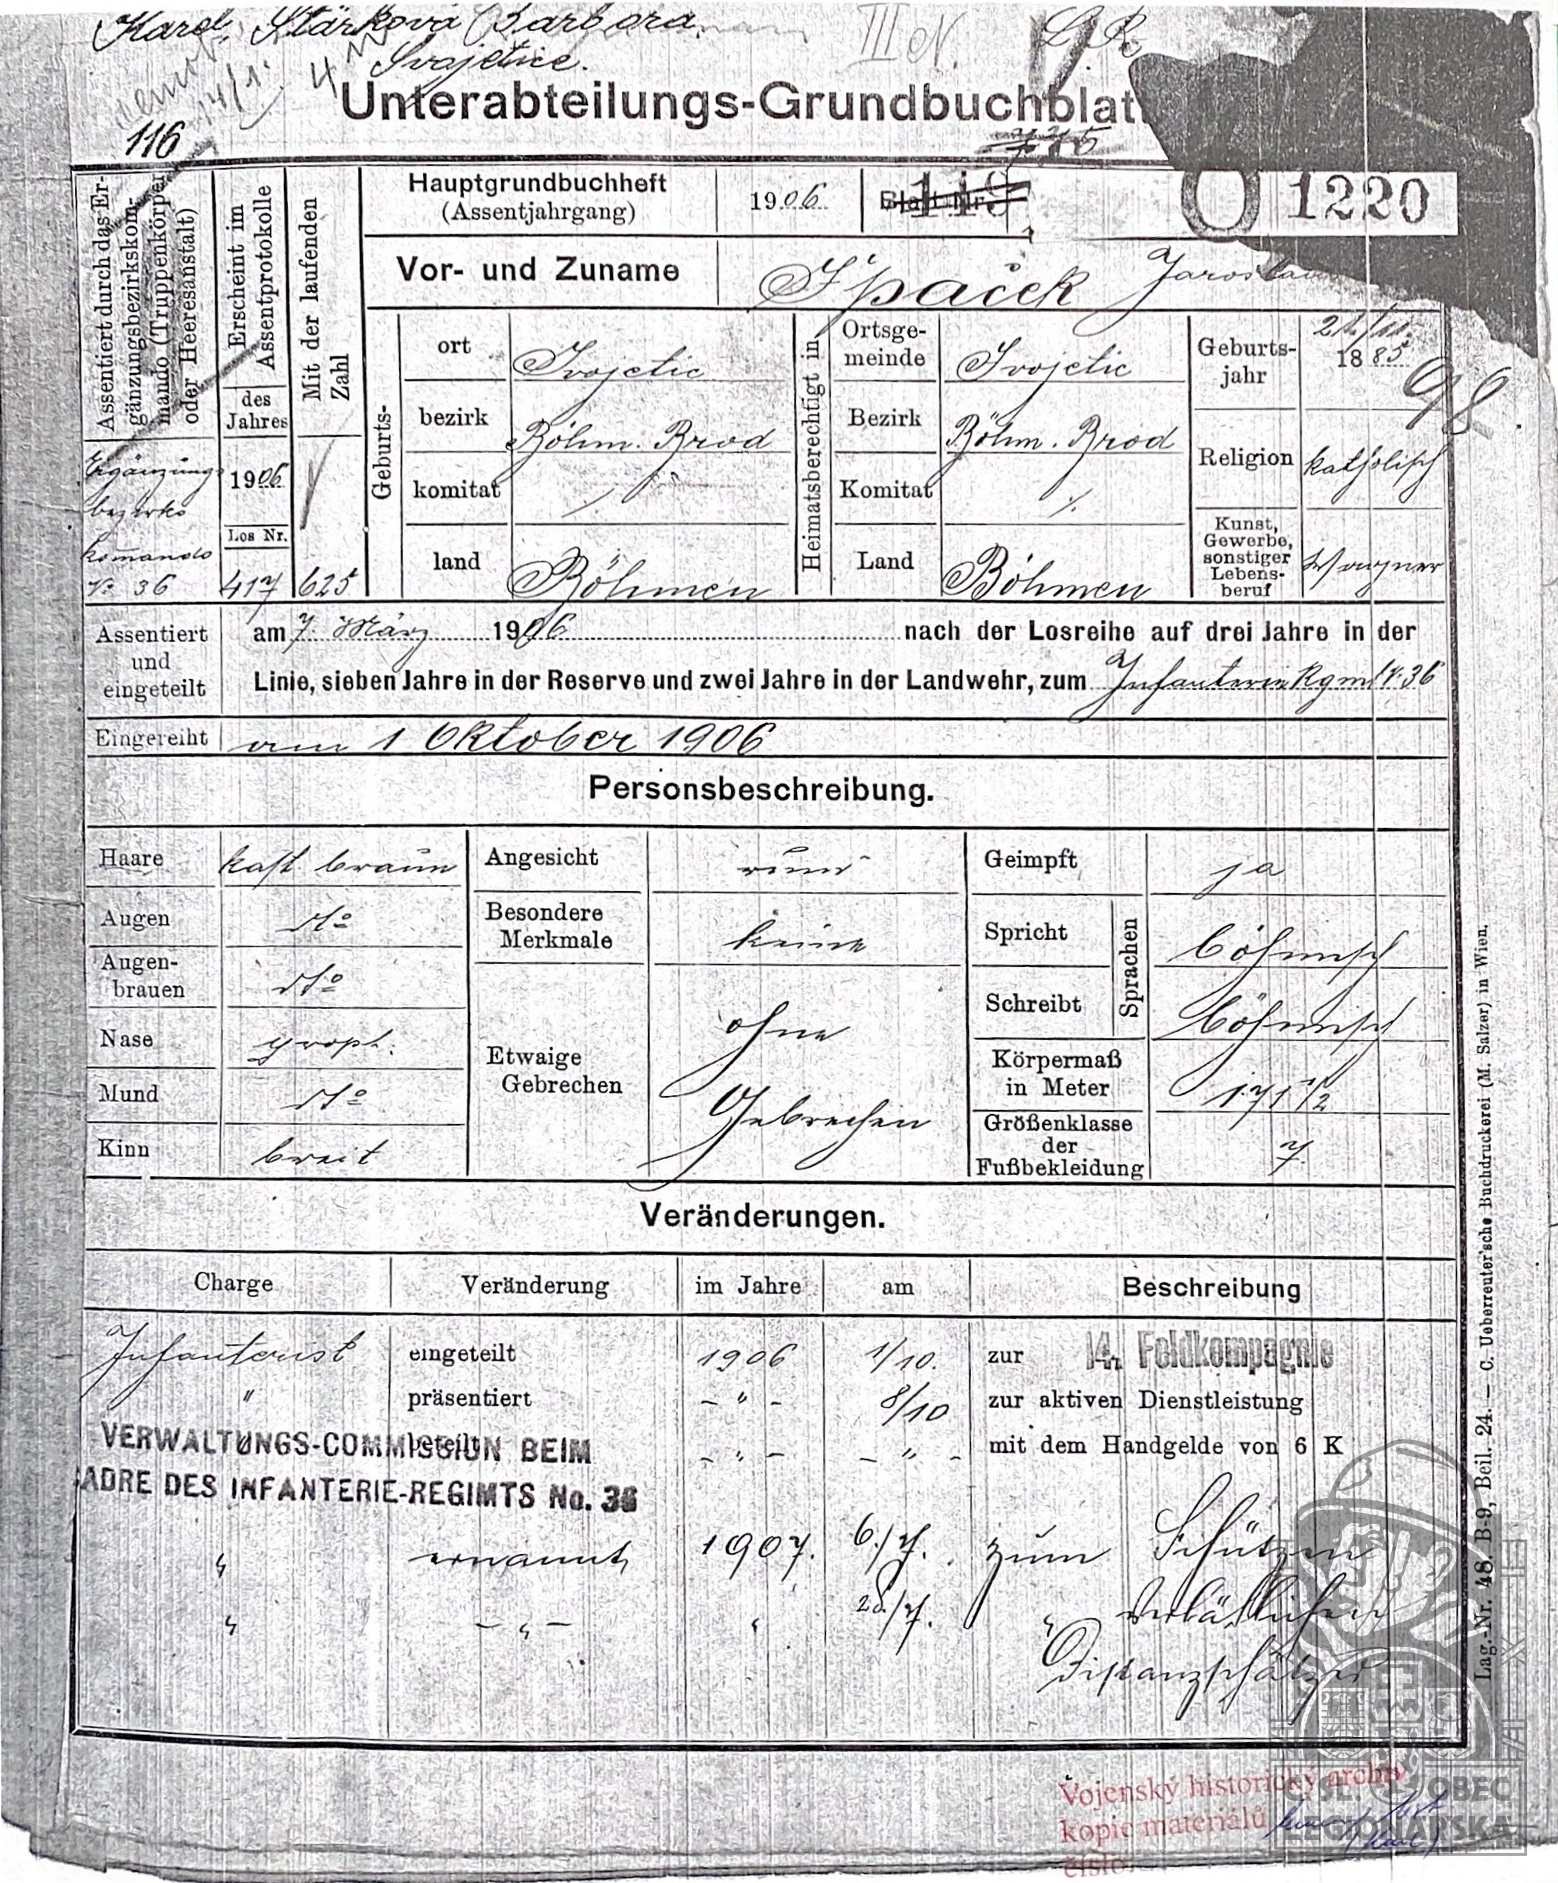 Karel, Stárková Barbora,
Svojetice.
III N.
116
Unterabteilungs-Grundbuchblatt
Assentiert durch das Ergänzungsbezirkskommando (Truppenkörper oder Heeresanstalt)
Erscheint im Assentprotokolle
des Jahres
Mit der laufenden Zahl
Hauptgrundbuchheft
(Assentjahrgang)
1906
Blatt Nr.
1220
Vor- und Zuname
Špaček Jaroslav
Geburts-
ort Svojetic
bezirk Böhm. Brod
komitat ⁒
land Böhmen
Heimatsberechtigt in
Ortsgemeinde Svojetic
Bezirk Böhm. Brod
Komitat ⁒
Land Böhmen
Geburtsjahr
1885
98
Religion katholisch
Kunst, Gewerbe, sonstiger Lebensberuf
Wagner
Ergänzungs
bezirks
komando
No 36
1906
Los Nr.
417
625
Assentiert und eingeteilt
am 7. März 1906 nach der Losreihe auf drei Jahre in der
Linie, sieben Jahre in der Reserve und zwei Jahre in der Landwehr, zum Infanterie Rgmt No 36
Eingereiht am 1 Oktober 1906
Personsbeschreibung.
Haare kast. braun
Augen dto
Augenbrauen dto
Nase proport.
Mund dto
Kinn breit
Angesicht rund
Besondere Merkmale keine
Etwaige Gebrechen ohne
Gebrechen
Geimpft ja
Sprachen
Spricht böhmisch
Schreibt böhmisch
Körpermaß in Meter 1.71 1/2
Größenklasse der Fußbekleidung 7.
Veränderungen.
Charge Veränderung im Jahre am Beschreibung
Infanterist eingeteilt 1906 1/10. zur 14. Feldkompagnie
" präsentiert - " - 8/10 zur aktiven Dienstleistung
beteilt - " - - " - mit dem Handgelde von 6 K
VERWALTUNGS-COMMISSION BEIM
CADRE DES INFANTERIE-REGIMTS No. 36
" ernannt 1907. 6./7. zum Schützen
" - " - " 28./7. " verläßlichen
Distanzschätzer
Lag.-Nr. 48. B-9, Beil. 24. — C. Ueberreuter'sche Buchdruckerei (M. Salzer) in Wien.
Vojenský historický archiv
kopie materiálů
číslo:
ČSL. OBEC
LEGIONÁŘSKÁ